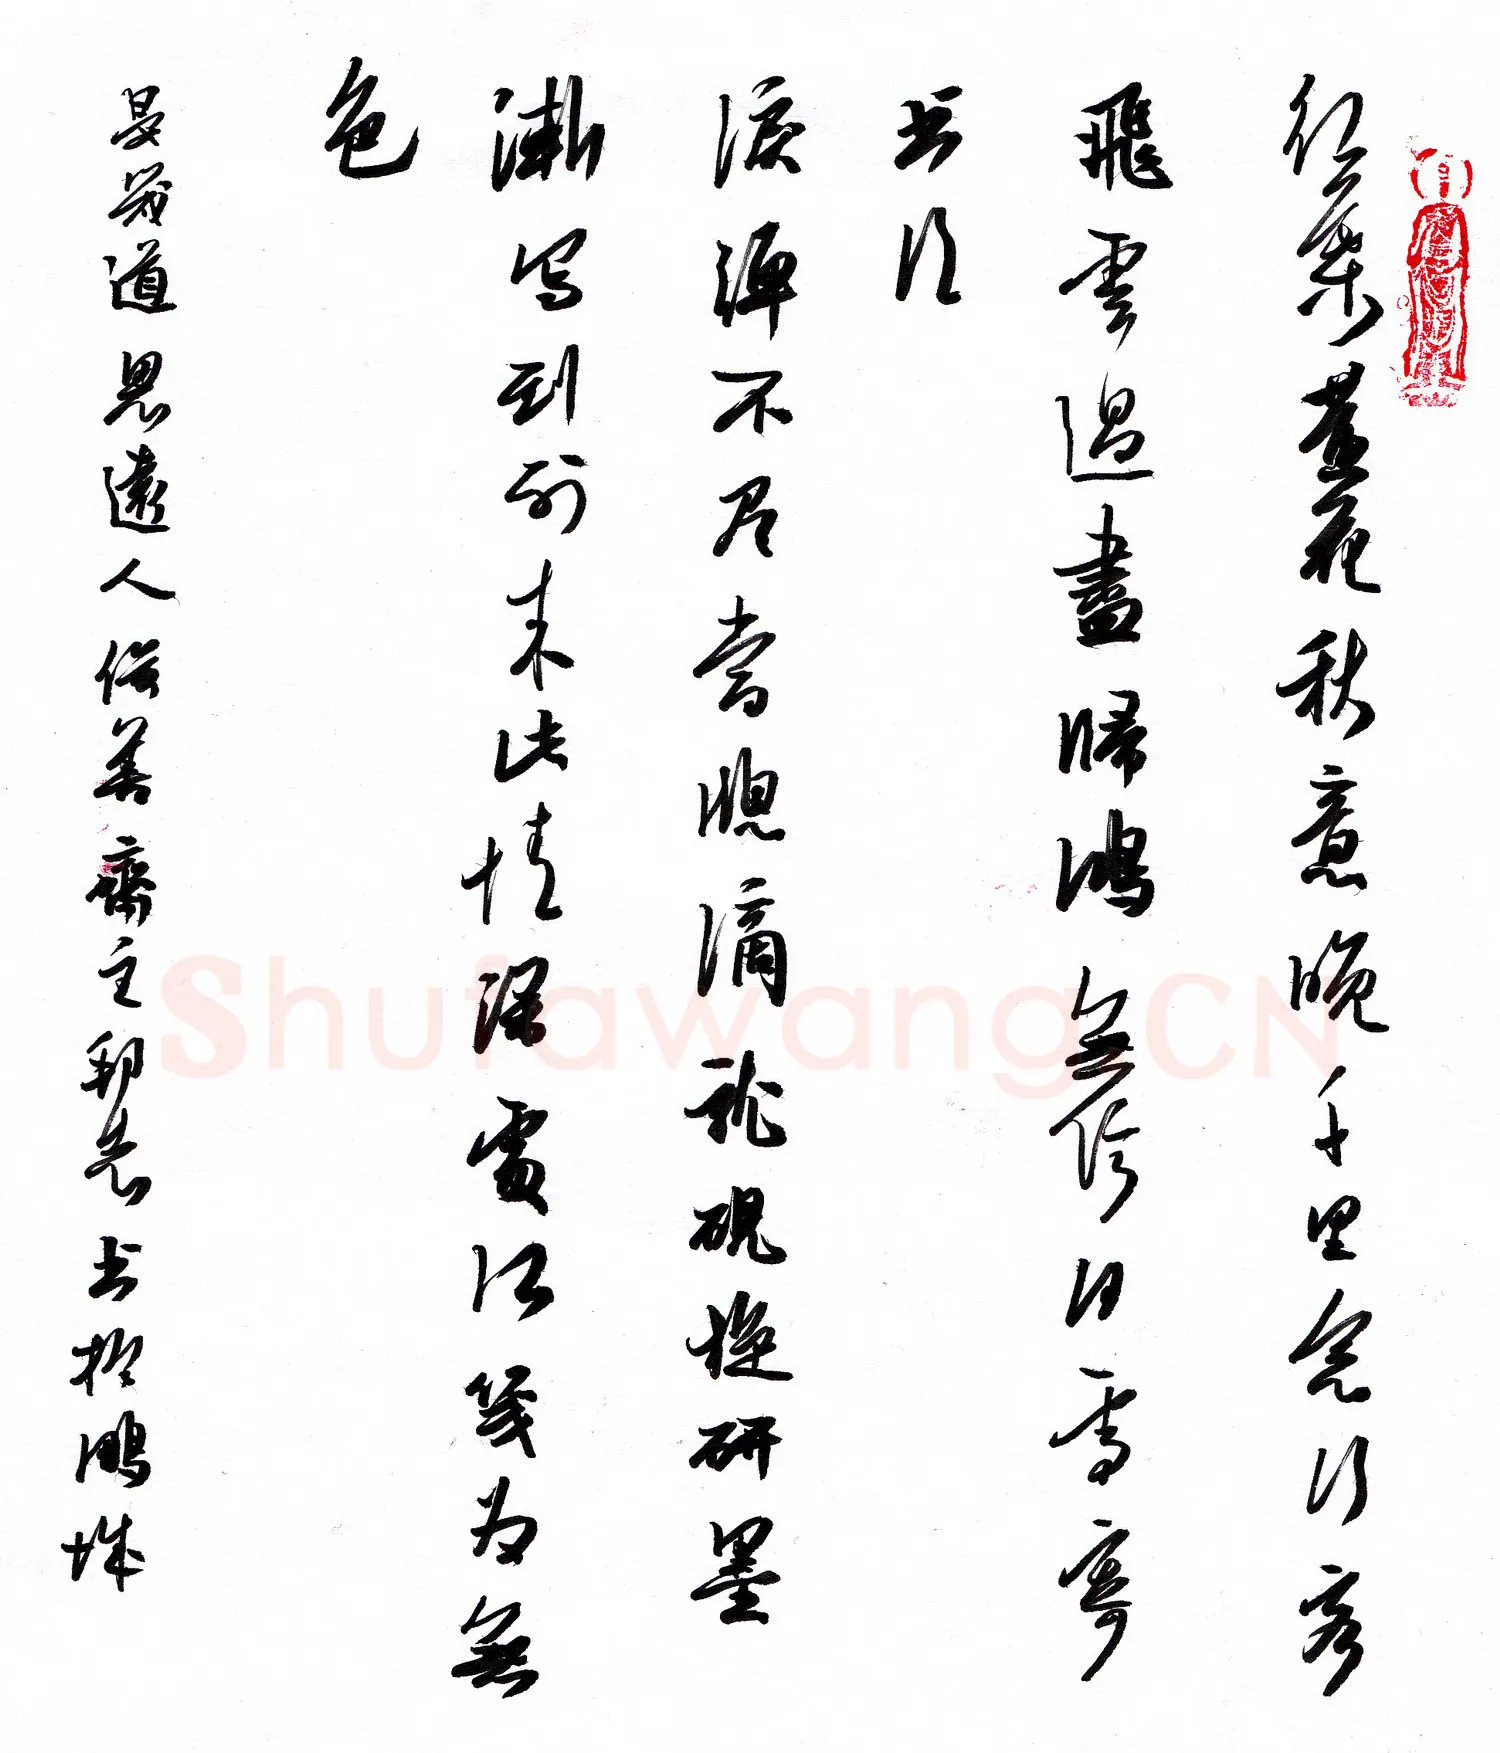 紅葉黃花秋意晚千里念行客
飛雲過盡歸鴻無信何處寄
书得
淚彈不尽當牕滴就硯旋研墨
漸写到別来此情深處红箋为無
色
晏幾道思遠人善齋主书於鵬城
Shufawang.CN